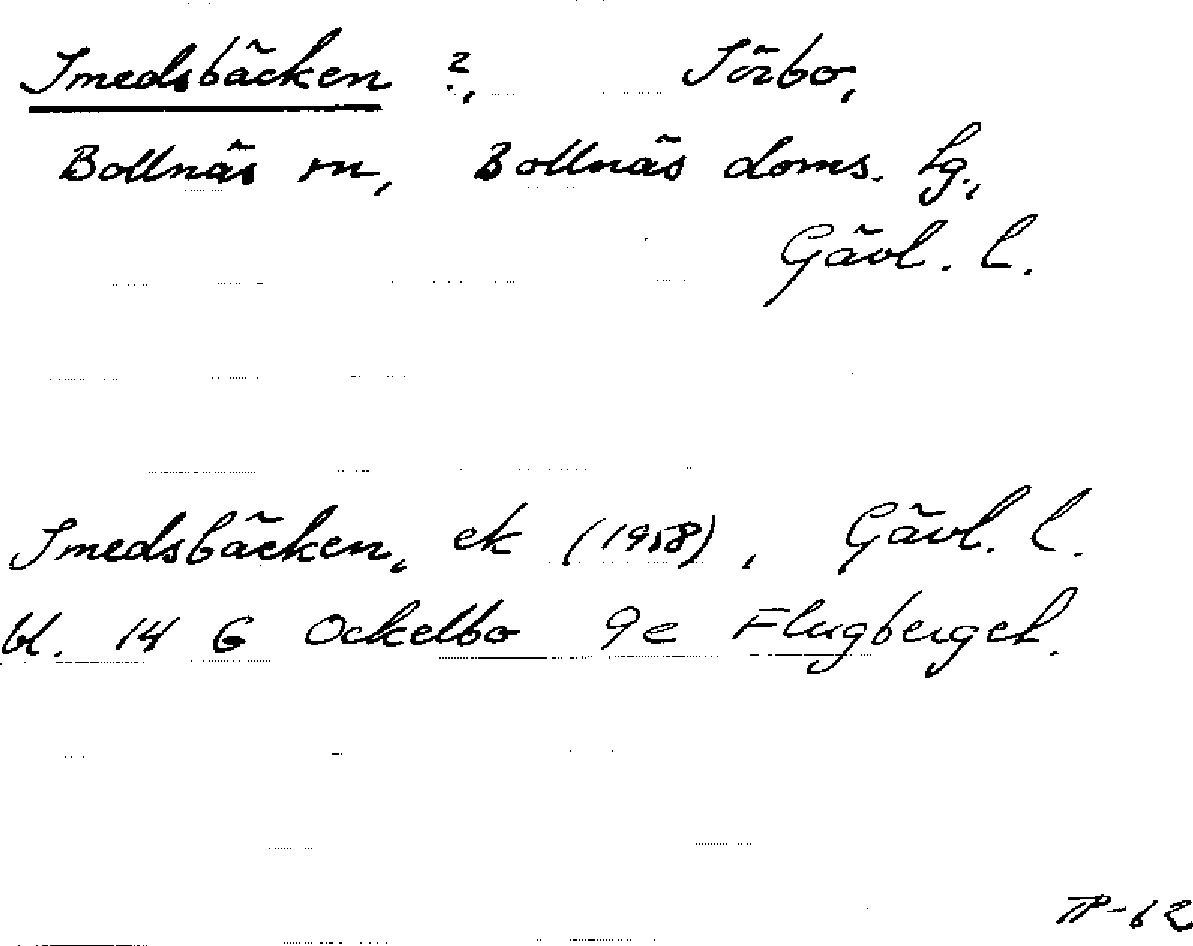 Smedsbäcken ?, Sörbo,
Bollnäs sn, Bollnäs doms. tg.,
Gävl. l.
Smedsbäcken, ek (1958), Gävl. l.
bl. 14 G Ockelbo 9e Flugberget.
TP-62